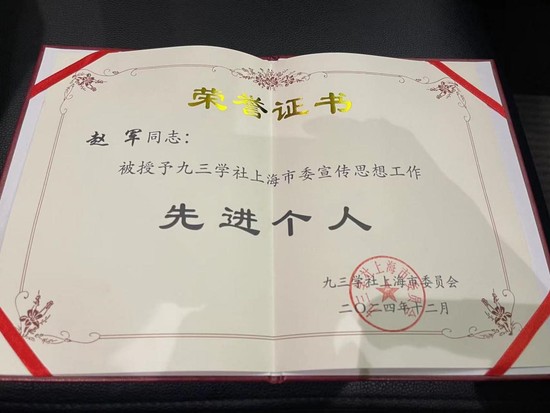 荣誉证书
赵军同志：
被授予九三学社上海市委宣传思想工作
先进个人
九三学社上海市委员会
二〇二四年十二月
九三学社上海市委员会